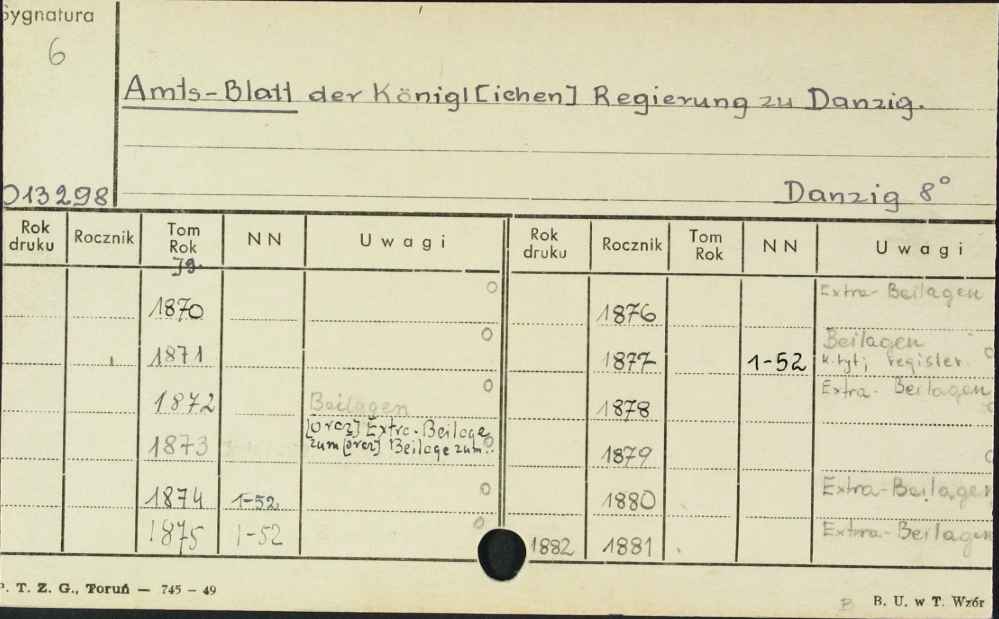 Sygnatura
6
Amts-Blatt der Königl[ichen] Regierung zu Danzig.
013298
Danzig 8°
Rok druku Rocznik Tom Rok Jg. NN Uwagi Rok druku Rocznik Tom Rok NN Uwagi
1870 1876 Extra-Beilagen
1871 1877 1-52 Beilagen k. tyt; register
1872 Beilagen 1878 Extra-Beilagen
1873 [oraz] Extra-Beilage zum [oraz] Beilage zum.. 1879
1874 1-52 1880 Extra-Beilagen
1875 1-52 1882 1881 Extra-Beilagen
P. T. Z. G., Toruń — 745 - 49
B B. U. w T. Wzór